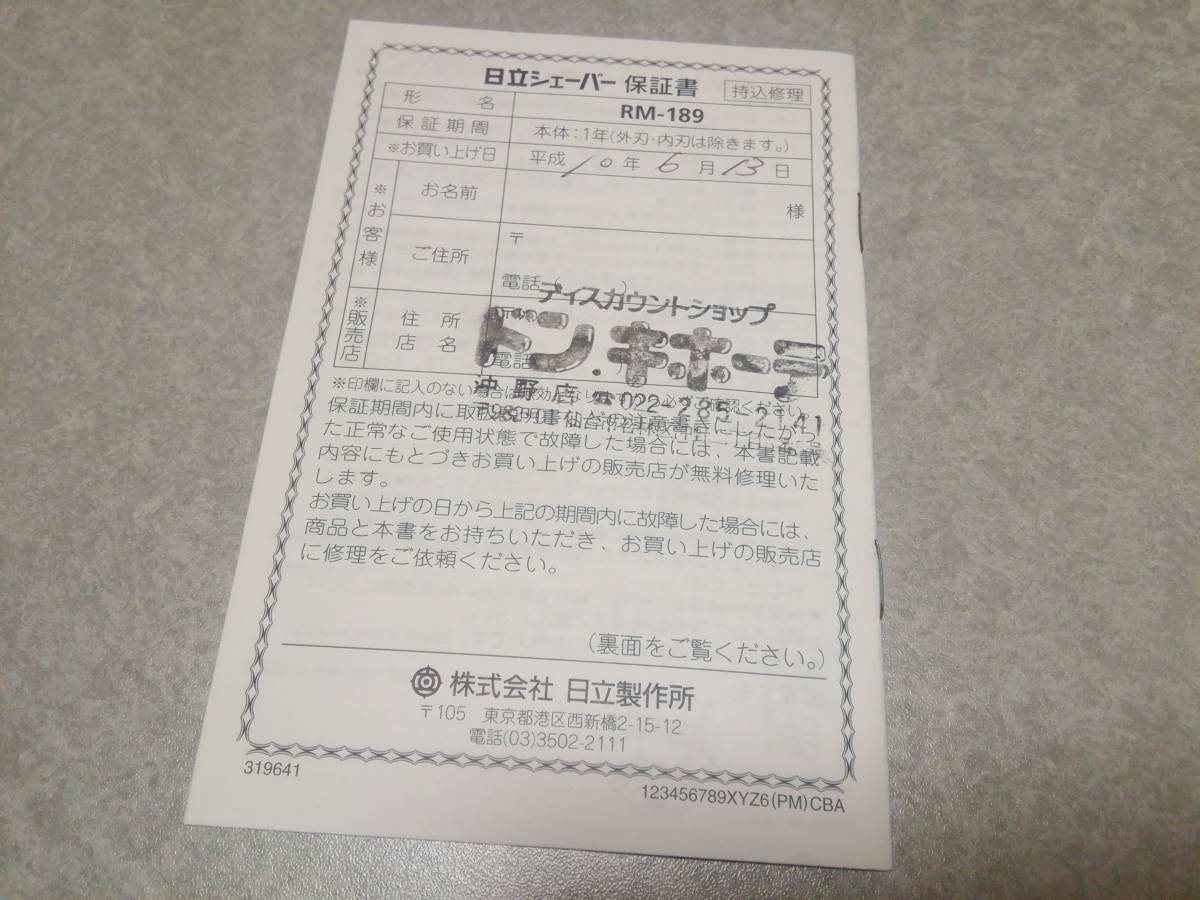 日立シェーバー 保証書 持込修理
形名 RM-189
保証期間 本体：1年(外刃・内刃は除きます。)
※お買い上げ日 平成10年6月13日
※お客様
お名前 様
ご住所 〒
電話 ( )
※販売店
住所
店名
電話
ディスカウントショップ
ドン.キホーテ
沖野店 ☎022-285-2141
※印欄に記入のない場合は
確認ください。
保証期間内に取扱説明書
の注意書きにしたがっ
た正常なご使用状態で故障した場合には、本書記載
内容にもとづきお買い上げの販売店が無料修理いた
します。
お買い上げの日から上記の期間内に故障した場合には、
商品と本書をお持ちいただき、お買い上げの販売店
に修理をご依頼ください。
(裏面をご覧ください。)
株式会社 日立製作所
〒105 東京都港区西新橋2-15-12
電話(03)3502-2111
319641
123456789XYZ6(PM)CBA